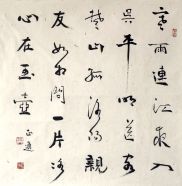 寒雨連江夜入
吳平明送客
楚山孤洛陽親
友如相問一片冰
心在玉壺